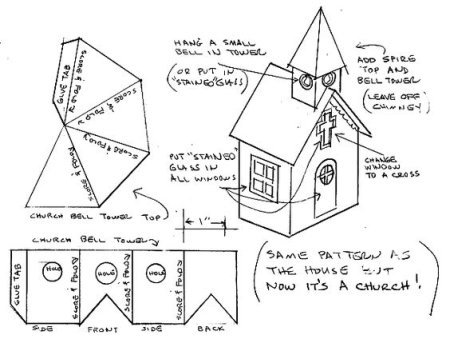 GLUE TAB
SCORE & FOLD
SCORE & FOLD
SCORE & FOLD
SCORE & FOLD
CHURCH BELL TOWER TOP
HANG A SMALL
BELL IN TOWER
(OR PUT IN
"STAINED" GLASS)
ADD SPIRE
TOP AND
BELL TOWER
(LEAVE OFF
CHIMNEY)
PUT "STAINED"
GLASS IN
ALL WINDOWS
CHANGE
WINDOW
TO A CROSS
1"
CHURCH BELL TOWER
GLUE TAB
HOLE
SCORE & FOLD
HOLE
SCORE & FOLD
HOLE
SCORE & FOLD
SIDE FRONT SIDE BACK
(SAME PATTERN AS
THE HOUSE BUT
NOW IT'S A CHURCH!)